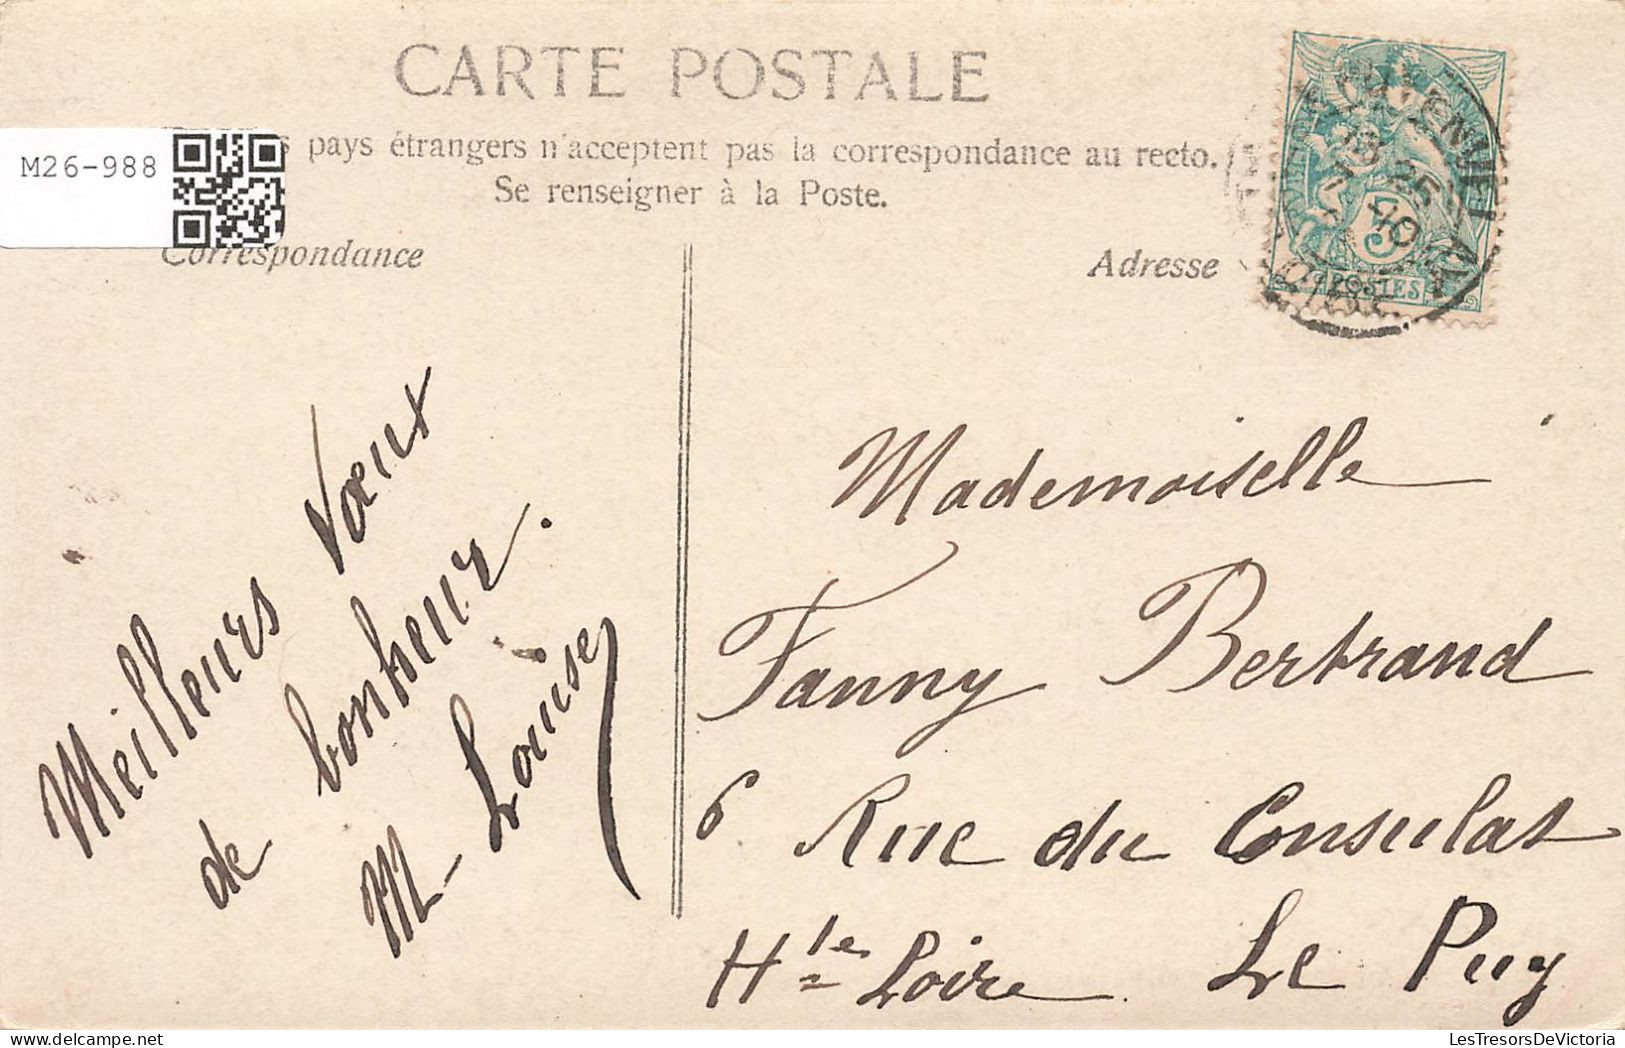 CARTE POSTALE
pays étrangers n'acceptent pas la correspondance au recto.
Se renseigner à la Poste.
M26-988
Correspondance
Adresse
5
POSTES
Meilleurs Vœux
de bonheur.
M-Louise
Mademoiselle
Fanny Bertrand
6 Rue du Consulat
Le Puy
Hte Loire
LesTresorsDeVictoria